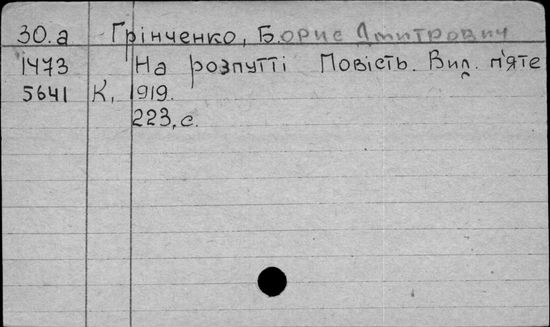 30.а Грінченко, Борис Дмитрович
1473 На розпутті Повість. Вид. п'яте
5641 К, 1919.
223, с.